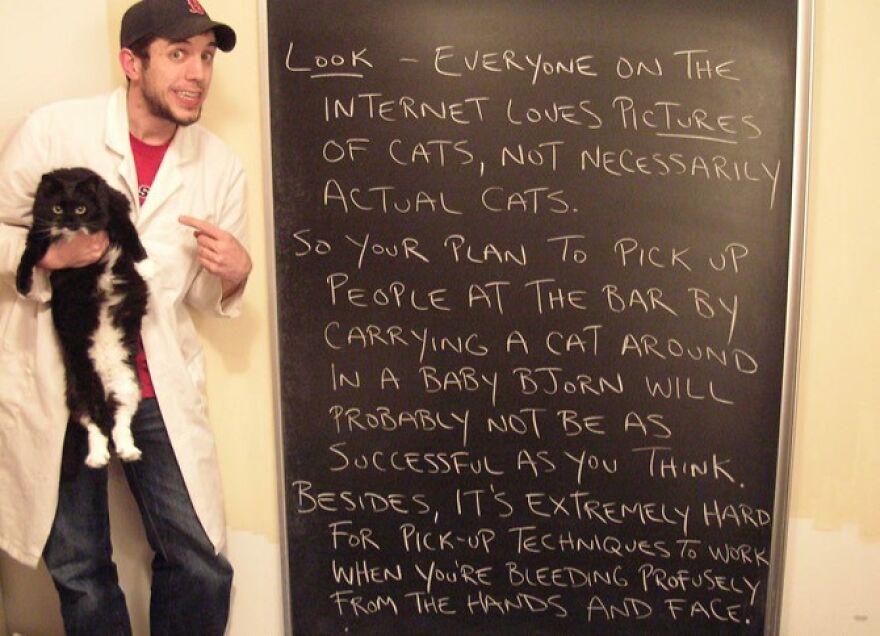 LOOK - EVERYONE ON THE
INTERNET LOVES PICTURES
OF CATS, NOT NECESSARILY
ACTUAL CATS.
SO YOUR PLAN TO PICK UP
PEOPLE AT THE BAR BY
CARRYING A CAT AROUND
IN A BABY BJORN WILL
PROBABLY NOT BE AS
SUCCESSFUL AS YOU THINK.
BESIDES, IT'S EXTREMELY HARD
FOR PICK-UP TECHNIQUES TO WORK
WHEN YOU'RE BLEEDING PROFUSELY
FROM THE HANDS AND FACE!